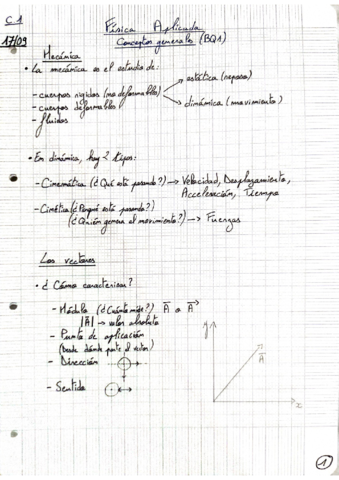 C.1
Física Aplicada
17/09
Conceptos generales (BQ1)
Mecánica
• La mecánica es el estudio de:
- cuerpos rígidos (no deformables)
- cuerpos deformables
- fluidos
→ estática (reposo)
→ dinámica (movimiento)
• En dinámica, hay 2 tipos:
- Cinemática (¿Qué está pasando?) → Velocidad, Desplazamiento,
Aceleración, Tiempo
- Cinética (¿Porqué está pasando?)
(¿Quién genera el movimiento?) → Fuerzas
Los vectores
• ¿Cómo caracterizar?
- Módulo (¿Cuánto mide?) A o A
|A| → valor absoluto
- Punto de aplicación
(Desde dónde parte el vector)
- Dirección
- Sentido
y
A
x
1